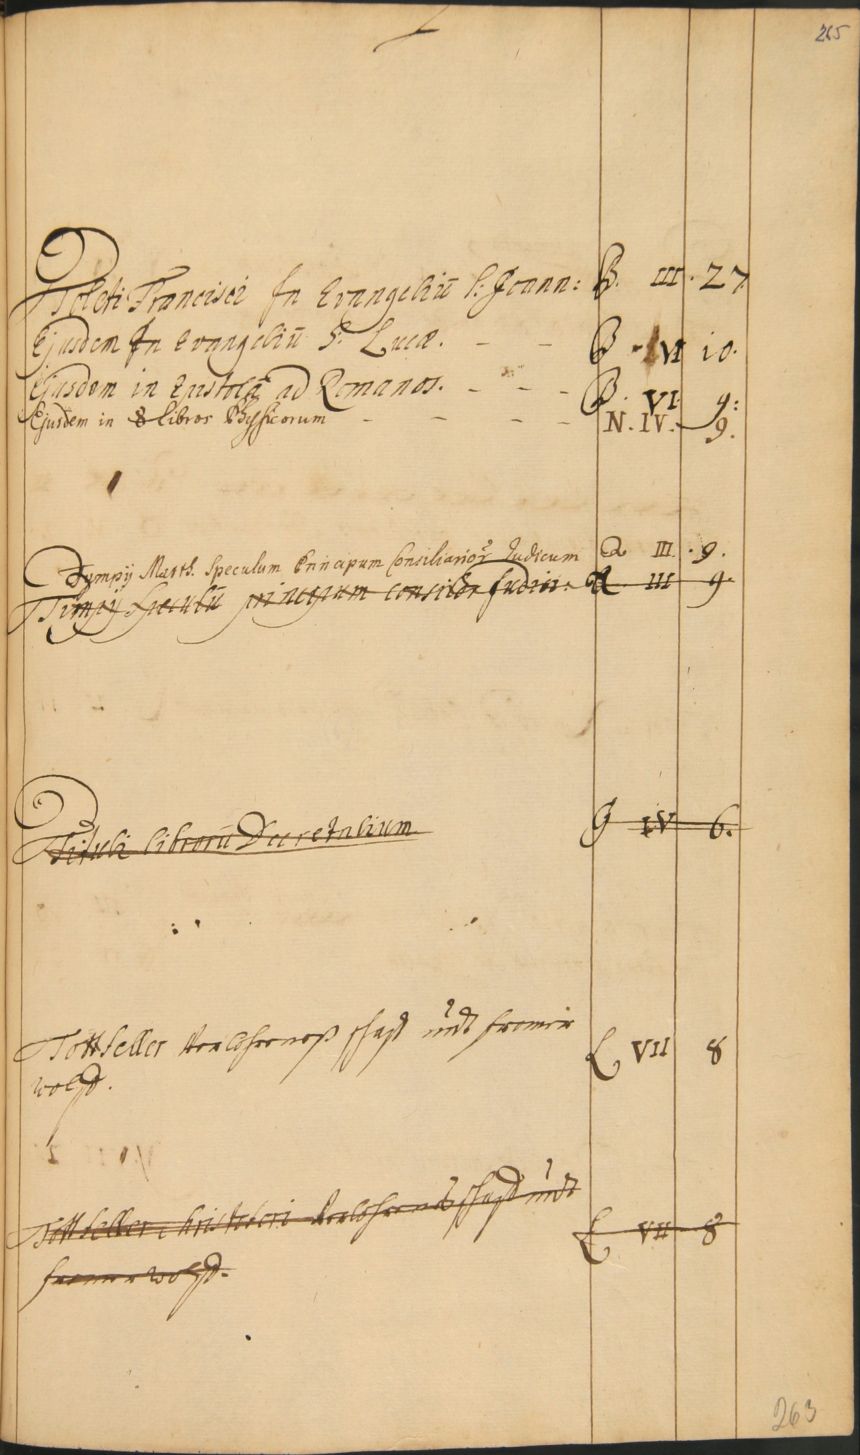 265
Toleti Francisci In Evangeliū S: Joann: B. III. 27
Ejusdem In Evangeliū S. Lucæ. - - B - VI 10.
Ejusdem in Epistolā ad Romanos. - - - B. VI. 9:
Ejusdem in 8 libros Physicorum - - - - N. IV. 9.
Tympij Matth. Speculum Principum Consiliarior Judicum Q III. 9.
Timpij Speculū principum consilior Judicū: Q III 9.
Tituli librorū Decretalium G IV 6.
Tottseller Verlohrenes schaff undt
L VII 8
Tottseller Christofori Verlohrenes schaff undt L VII 8
263